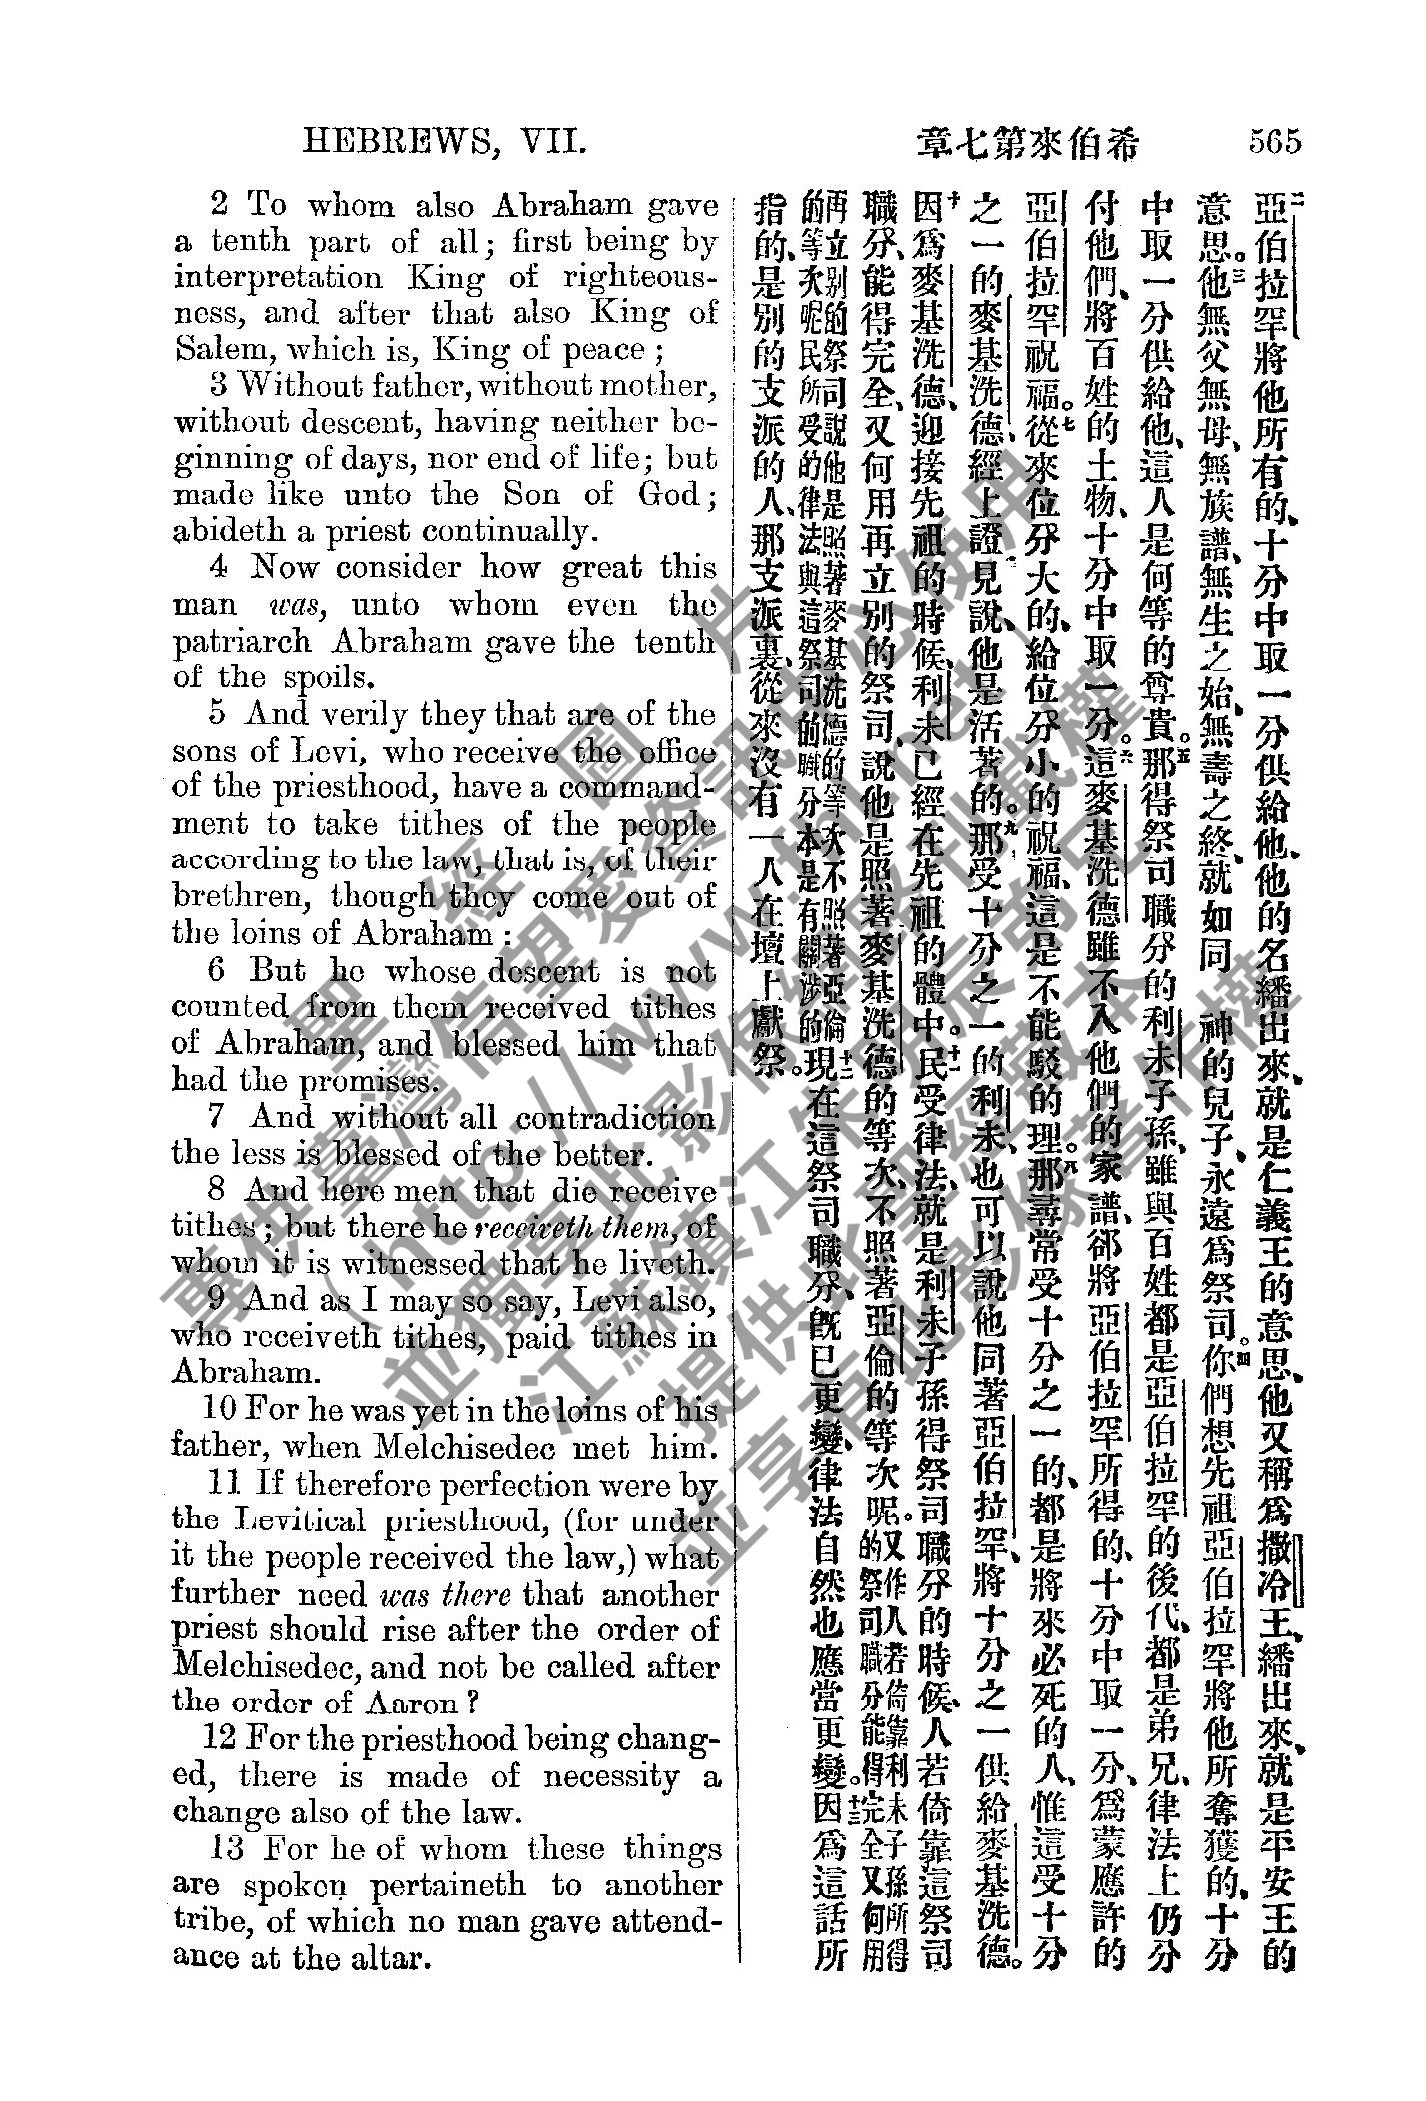 HEBREWS, VII.
章七第來伯希
565
2 To whom also Abraham gave
a tenth part of all; first being by
interpretation King of righteous-
ness, and after that also King of
Salem, which is, King of peace;
3 Without father, without mother,
without descent, having neither be-
ginning of days, nor end of life; but
made like unto the Son of God;
abideth a priest continually.
4 Now consider how great this
man was, unto whom even the
patriarch Abraham gave the tenth
of the spoils.
5 And verily they that are of the
sons of Levi, who receive the office
of the priesthood, have a command-
ment to take tithes of the people
according to the law, that is, of their
brethren, though they come out of
the loins of Abraham:
6 But he whose descent is not
counted from them received tithes
of Abraham, and blessed him that
had the promises.
7 And without all contradiction
the less is blessed of the better.
8 And here men that die receive
tithes; but there he receiveth them, of
whom it is witnessed that he liveth.
9 And as I may so say, Levi also,
who receiveth tithes, paid tithes in
Abraham.
10 For he was yet in the loins of his
father, when Melchisedec met him.
11 If therefore perfection were by
the Levitical priesthood, (for under
it the people received the law,) what
further need was there that another
priest should rise after the order of
Melchisedec, and not be called after
the order of Aaron?
12 For the priesthood being chang-
ed, there is made of necessity a
change also of the law.
13 For he of whom these things
are spoken pertaineth to another
tribe, of which no man gave attend-
ance at the altar.
二亞伯拉罕將他所有的、十分中取一分供給他、他的名繙出來、就是仁義王的意思、他又稱爲撒冷王、繙出來、就是平安王的
意思。三他無父無母、無族譜、無生之始、無壽之終、就如同 神的兒子、永遠爲祭司。四你們想先祖亞伯拉罕將他所奪獲的、十分
中取一分供給他、這人是何等的尊貴。五那得祭司職分的利未子孫、雖與百姓都是亞伯拉罕的後代、都是弟兄、律法上仍分
付他們、將百姓的土物、十分中取一分。六這麥基洗德雖不入他們的家譜、卻將亞伯拉罕所得的、十分中取一分、爲蒙應許的
亞伯拉罕祝福。七從來位分大的、給位分小的祝福、這是不能駁的理。八那尋常受十分之一的、都是將來必死的人、惟這受十分
之一的麥基洗德、經上證見說、他是活著的。九那受十分之一的利未、也可以說他同著亞伯拉罕、將十分之一供給麥基洗德。
十因爲麥基洗德、迎接先祖的時候、利未已經在先祖的體中。十一民受律法、就是利未子孫得祭司職分的時候、人若倚靠這祭司
職分、能得完全、又何用再立別的祭司、說他是照著麥基洗德的等次、不照著亞倫的等次呢。又作人若倚靠利未子孫所得
的祭司職分能得完全又何用
再立別的祭司說他是照著麥基洗德的等次不照著亞倫
的等次呢民所受的律法與這祭司的職分本是有關涉的
十二現在這祭司職分、旣已更變、律法自然也應當更變。十三因爲這話所
指的、是別的支派的人、那支派裏、從來沒有一人在壇上獻祭。